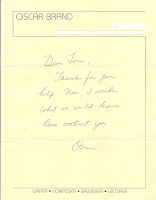 OSCAR BRAND
Dear Tom,
Thanks for your
help. Now, I wonder
what we would have
done without you
Oscar
WRITER • COMPOSER • BALLADEER • LECTURER